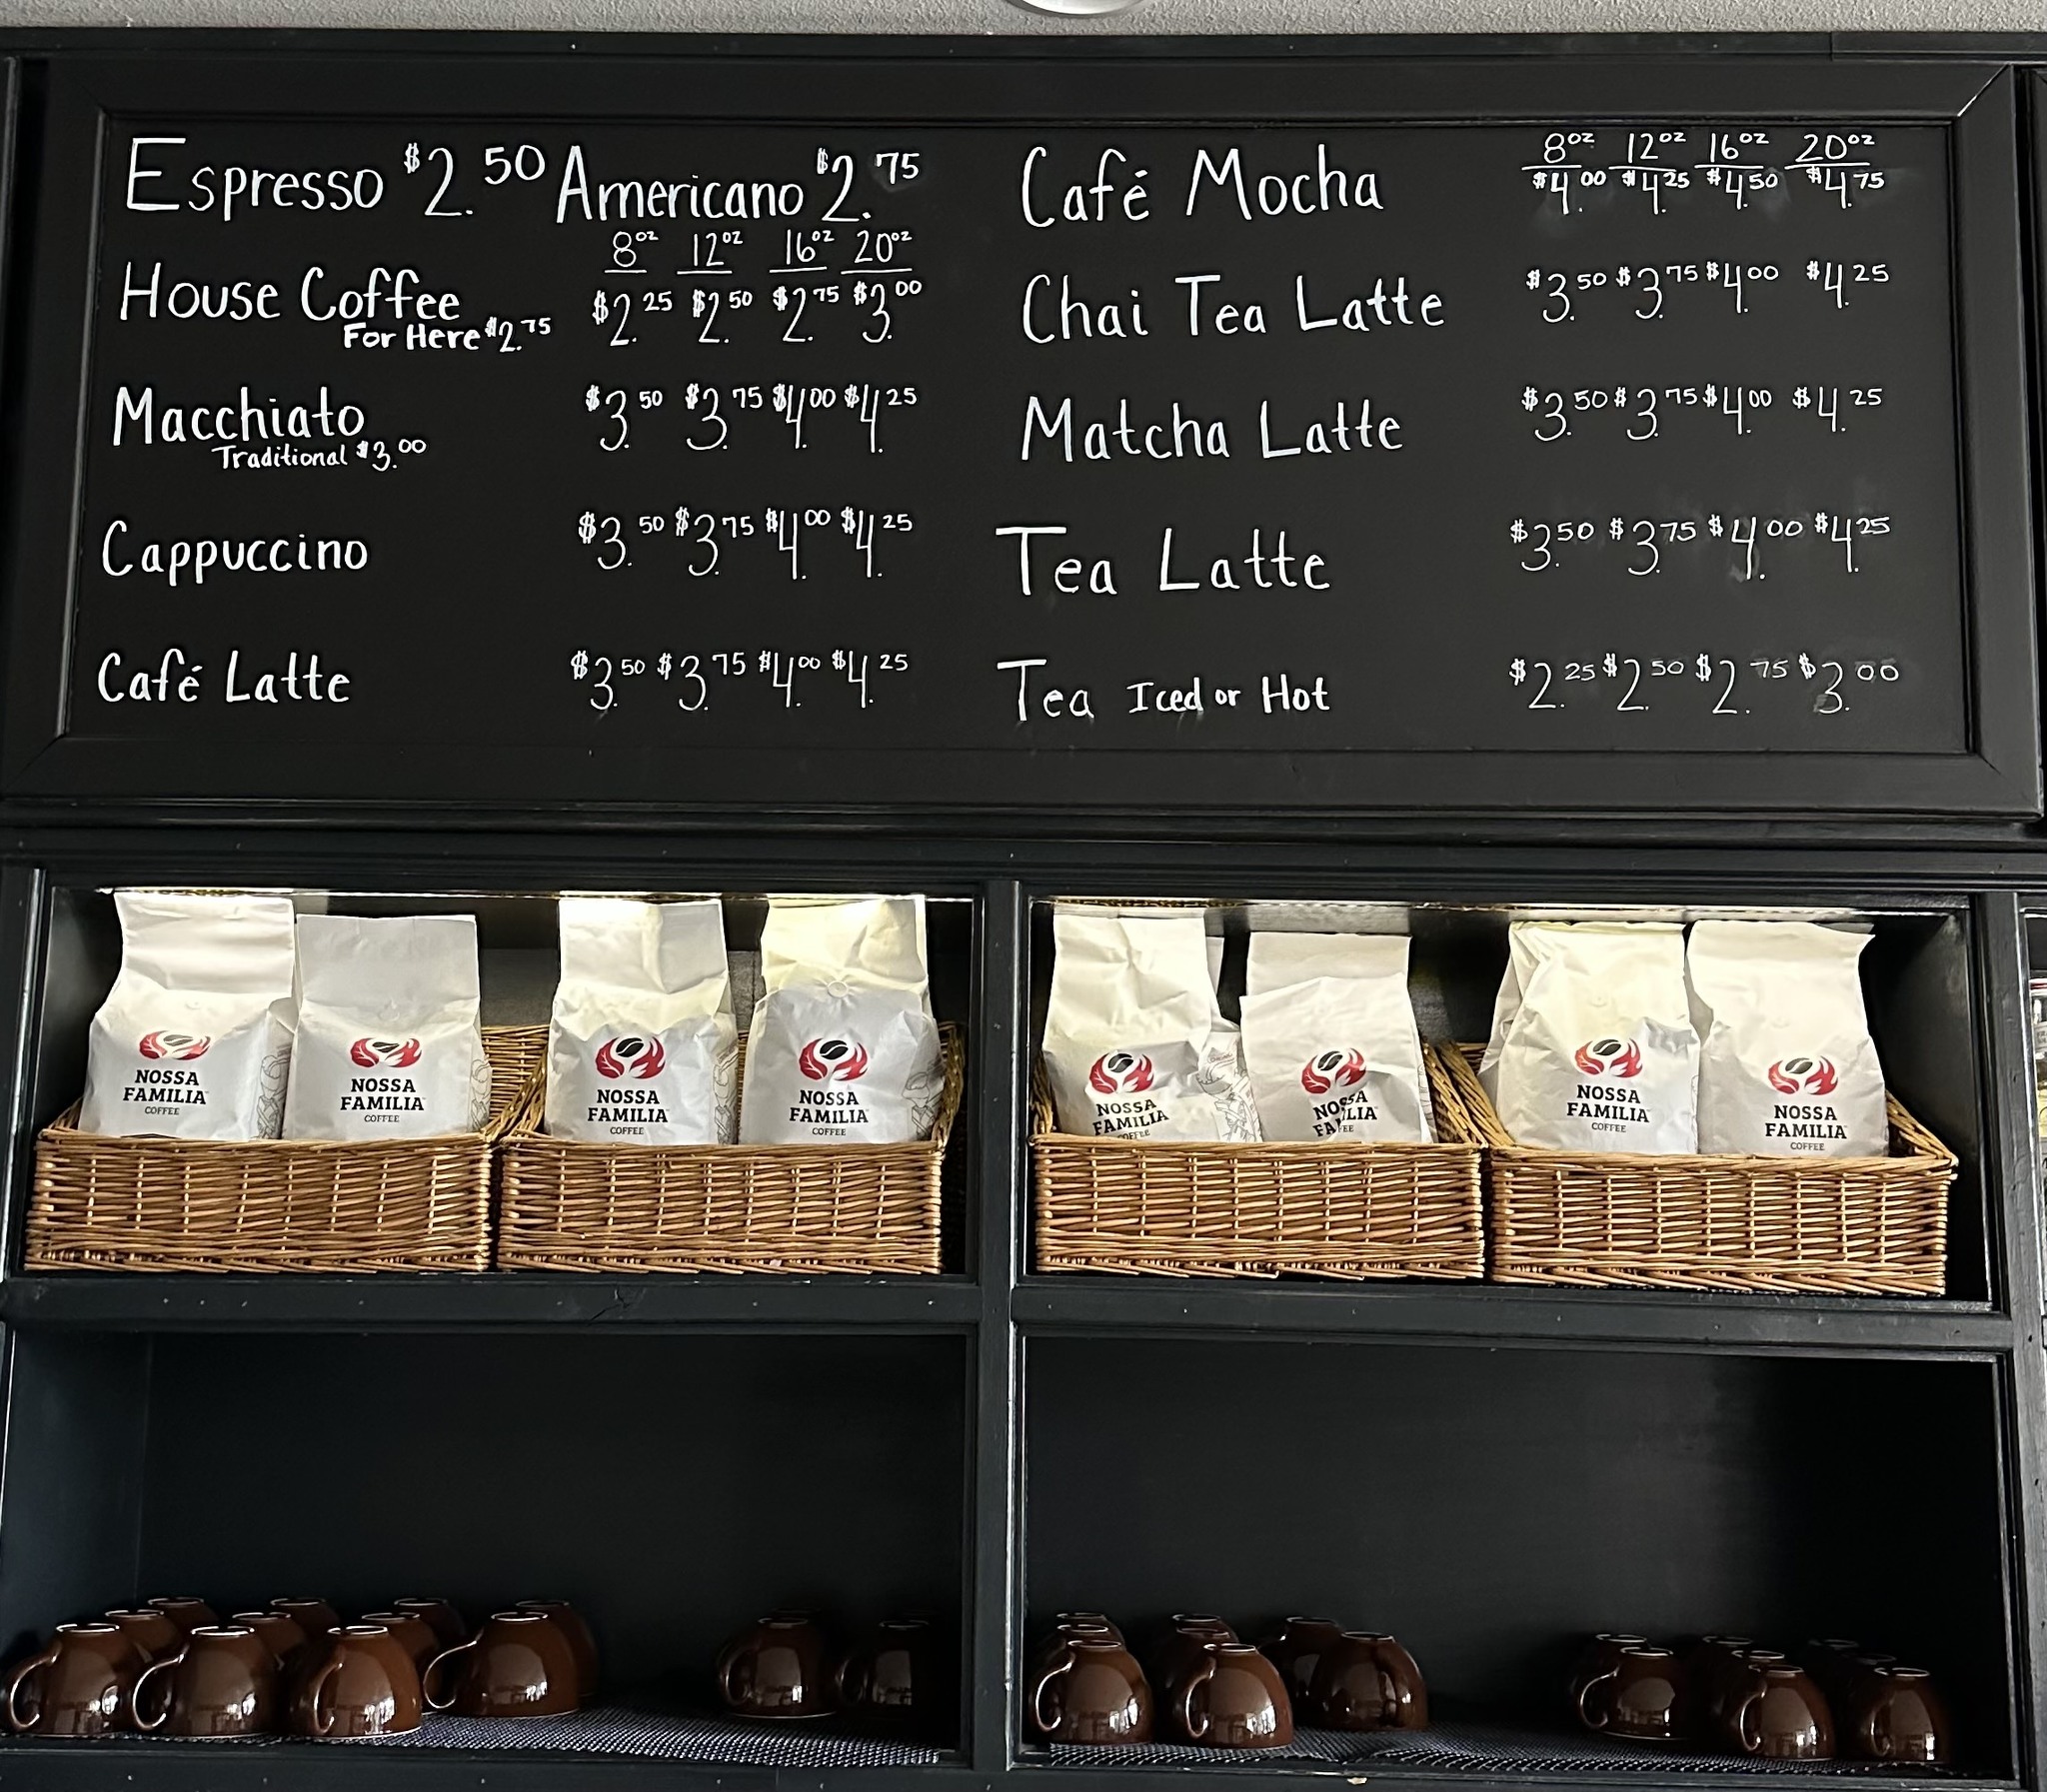 Espresso $2.50 Americano $2.75
8oz 12oz 16oz 20oz
House Coffee $2.25 $2.50 $2.75 $3.00
For Here $2.75
Macchiato $3.50 $3.75 $4.00 $4.25
Traditional $3.00
Cappuccino $3.50 $3.75 $4.00 $4.25
Café Latte $3.50 $3.75 $4.00 $4.25
8oz 12oz 16oz 20oz
Café Mocha $4.00 $4.25 $4.50 $4.75
Chai Tea Latte $3.50 $3.75 $4.00 $4.25
Matcha Latte $3.50 $3.75 $4.00 $4.25
Tea Latte $3.50 $3.75 $4.00 $4.25
Tea Iced or Hot $2.25 $2.50 $2.75 $3.00
NOSSA
FAMILIA
COFFEE
NOSSA
FAMILIA
COFFEE
NOSSA
FAMILIA
COFFEE
NOSSA
FAMILIA
COFFEE
NOSSA
FAMILIA
COFFEE
NOSSA
FAMILIA
COFFEE
NOSSA
FAMILIA
COFFEE
NOSSA
FAMILIA
COFFEE